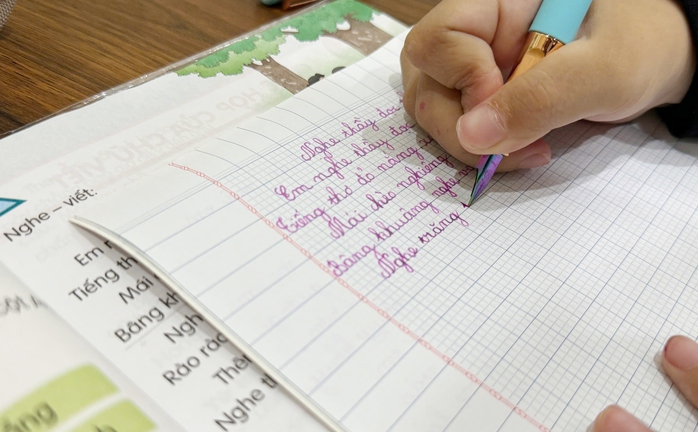 Nghe – viết:
Em
Tiếng th
Mái
Bâng kh
Ngh
Rào rào
Nghe
Nghe thầy đọc
Em nghe thầy đọc
Tiếng thơ đỏ nắng
Mái chèo nghiêng
Bâng khuâng nghe
Nghe trăng